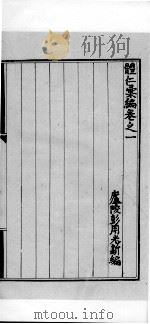 體仁彙編卷之一
廬陵彭用光新編
mtoou.info